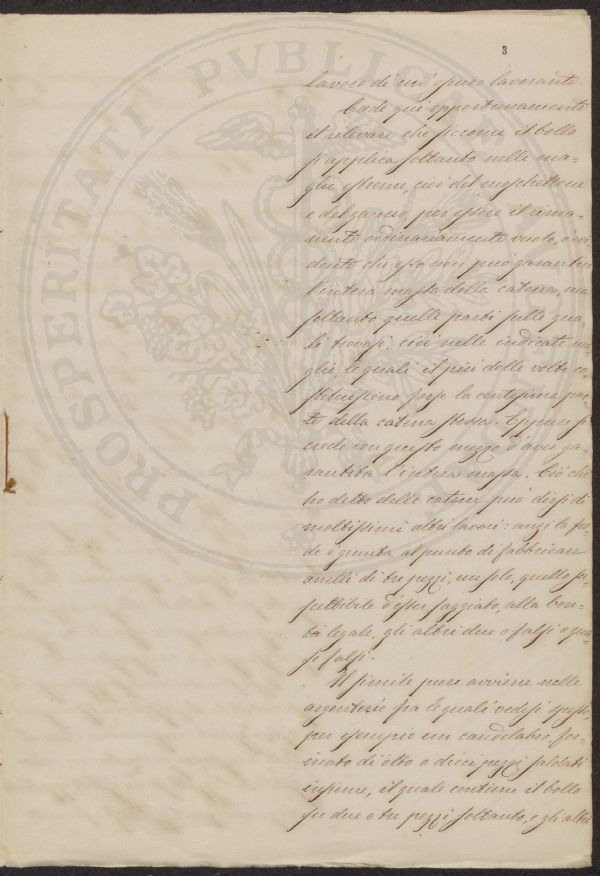 3
lavoro di un' onesto lavorante.
Cade qui opportunamente
il rilevare che siccome il bollo
s'applica soltanto nelle ma-
glie estreme, cioè del moschettone
e del gancio, per essere il rima-
nente ordinariamente vuoto, evi-
dente che esso non può garantire
l'intera massa della catena, ma
soltanto quelle parti sulle qua-
li trovasi, cioè nelle indicate ma-
glie, le quali il più delle volte co-
stituiscono forse la centesima par-
te della catena stessa. Eppure si
crede con questo mezzo d'aver ga-
rantita l'intera massa. Ciò che
ho detto delle catene può dirsi di
moltissimi altri lavori: anzi la fro-
de è giunta al punto di fabbricare
anelli di tre pezzi, un solo, quello su-
scettibile d'esser saggiato, alla bon-
tà legale, gli altri due o falsi o qua-
si falsi.
Il simile pure avviene nelle
argenterie fra le quali vedesi spesso,
per esempio un candelabro, for-
mato di otto o dieci pezzi saldati
insieme, il quale contiene il bollo
su due o tre pezzi soltanto, e gli altri
PROSPERITATI PUBLICAE